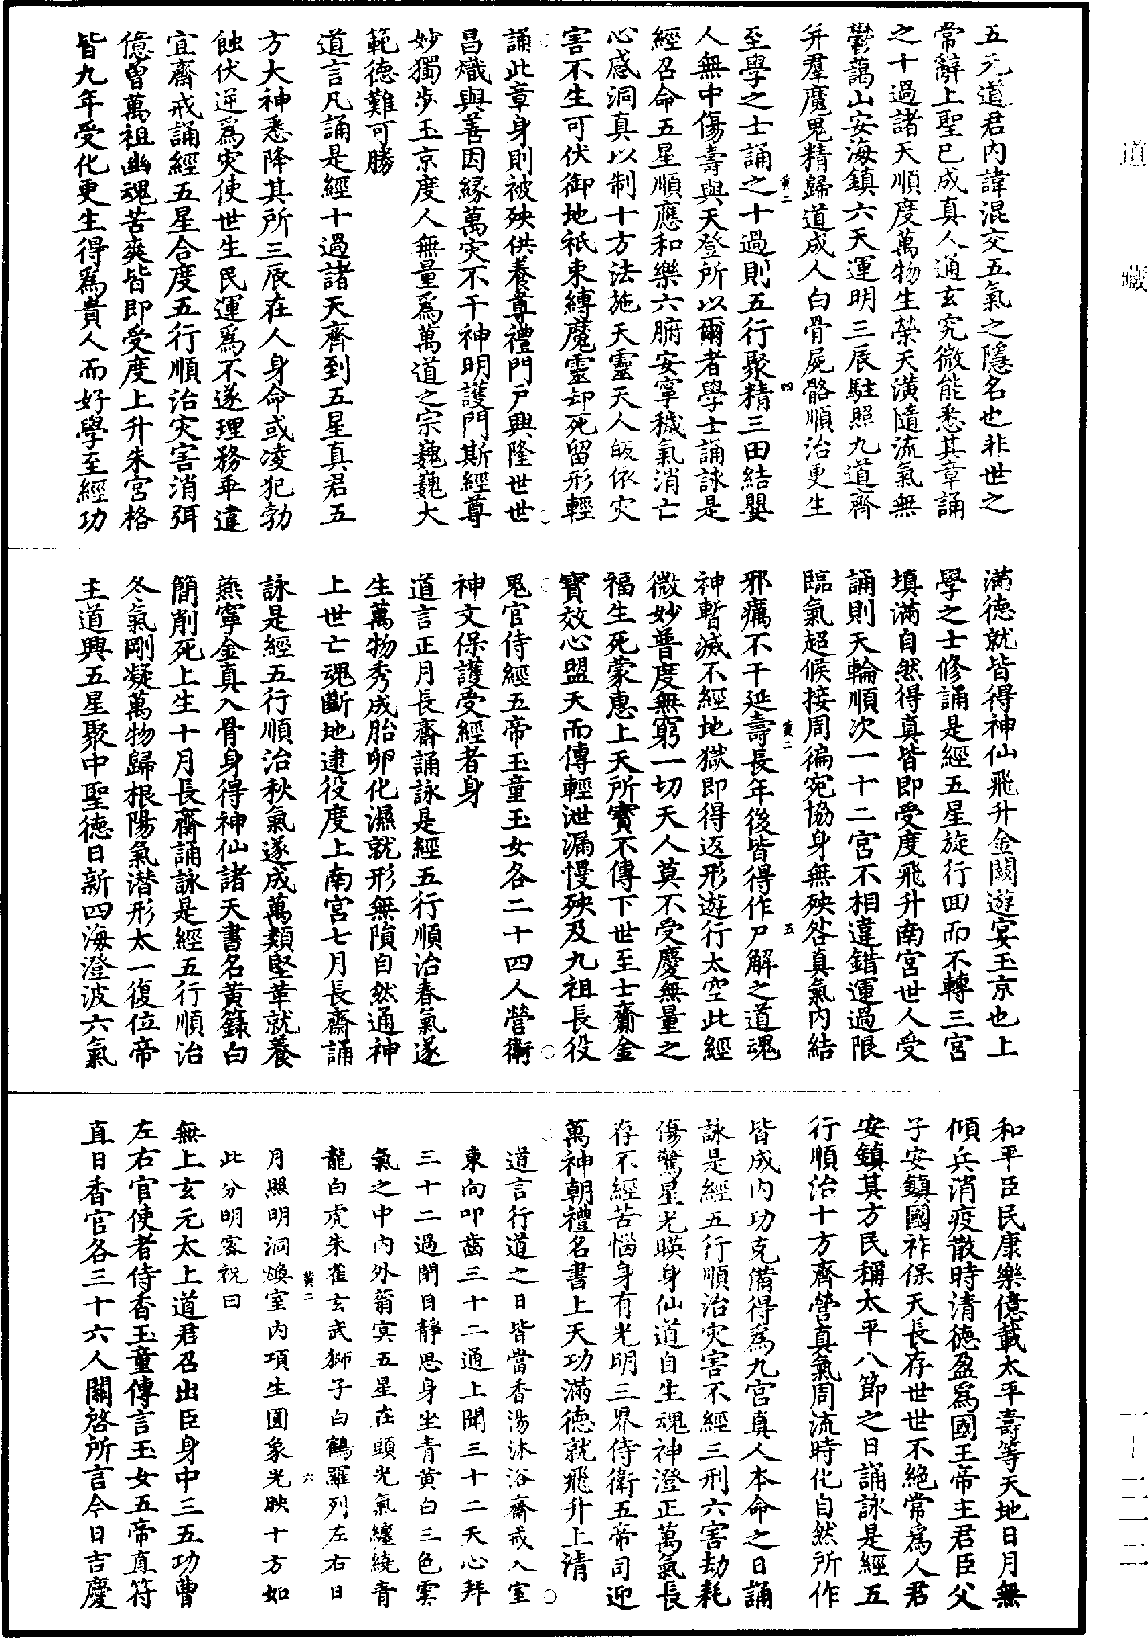 五元道君內諱混交五氣之隱名也非世之
常辭上聖已成真人通玄究微能悉其章誦
之十過諸天順度萬物生榮天潢隨流氣無
鬱藹山安海鎮六天運明三辰駐照九道齊
并羣魔鬼精歸道成人白骨屍骼順治更生
黃二
四
至學之士誦之十過則五行聚精三田結嬰
人無中傷壽與天登所以爾者學士誦詠是
經召命五星順應和樂六腑安寧穢氣消亡
心感洞真以制十方法施天靈天人皈依灾
害不生可伏御地祇束縛魔靈却死留形輕
誦此章身則被殃供養尊禮門戶興隆世世
昌熾與善因緣萬灾不干神明護門斯經尊
妙獨步玉京度人無量爲萬道之宗巍巍大
範德難可勝
道言凡誦是經十過諸天齊到五星真君五
方大神悉降其所三辰在人身命或凌犯勃
蝕伏逆爲灾使世生民運爲不遂理務乖違
宜齋戒誦經五星合度五行順治灾害消弭
億曾萬祖幽魂苦爽皆即受度上升朱宮格
皆九年受化更生得爲貴人而好學至經功
滿德就皆得神仙飛升金闕遊宴玉京也上
學之士修誦是經五星旋行四而不轉三宮
填滿自然得真皆即受度飛升南宮世人受
誦則天輪順次一十二宮不相違錯運過限
臨氣超候接周徧宛協身無殃咎真氣內結
黃二
五
邪癘不干延壽長年後皆得作尸解之道魂
神暫滅不經地獄即得返形遊行太空此經
微妙普度無窮一切天人莫不受慶無量之
福生死蒙惠上天所寶不傳下世至士齎金
寶效心盟天而傳輕泄漏慢殃及九祖長役
鬼官侍經五帝玉童玉女各二十四人營衛
神文保護受經者身
道言正月長齋誦詠是經五行順治春氣遂
生萬物秀成胎卵化濕就形無隕自然通神
上世亡魂斷地逮役度上南宮七月長齋誦
詠是經五行順治秋氣遂成萬類堅華就養
燕寧金真入骨身得神仙諸天書名黃籙白
簡削死上生十月長齋誦詠是經五行順治
冬氣剛凝萬物歸根陽氣潛形太一復位帝
主道興五星聚中聖德日新四海澄波六氣
和平臣民康樂億載太平壽等天地日月無
傾兵消疫散時清德盈爲國王帝主君臣父
子安鎮國祚保天長存世世不絕常爲人君
安鎮其方民稱太平八節之日誦詠是經五
行順治十方齊營真氣周流時化自然所作
皆成內功克備得爲九宮真人本命之日誦
詠是經五行順治灾害不經三刑六害劫耗
傷驚星光暎身仙道自生魂神澄正萬氣長
存不經苦惱身有光明三界侍衛五帝司迎
萬神朝禮名書上天功滿德就飛升上清
道言行道之日皆當香湯沐浴齋戒入室
東向叩齒三十二通上聞三十二天心拜
三十二過閉目靜思身坐青黃白三色雲
氣之中內外蓊冥五星在頭光氣纏繞青
龍白虎朱雀玄武獅子白鶴羅列左右日
黃二
六
月照明洞煥室內項生圓象光映十方如
此分明密祝曰
無上玄元太上道君召出臣身中三五功曹
左右官使者侍香玉童傳言玉女五帝直符
直日香官各三十六人關啓所言今日吉慶
道藏
一－二一二